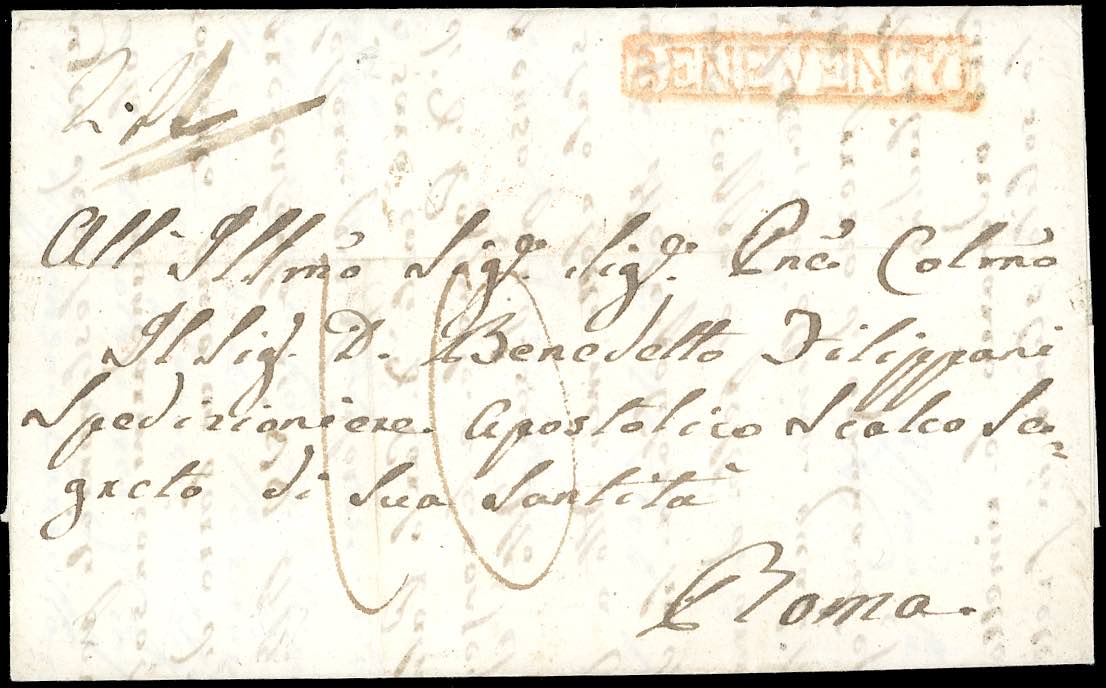 BENEVENTO
All'Illmo Sigre. Sigre. Prnē Colmō
Il Sig. D. Benedetto Filippani
Spedizioniere Apostolico Scalco Se=
greto di Sua Santità
10
Roma.